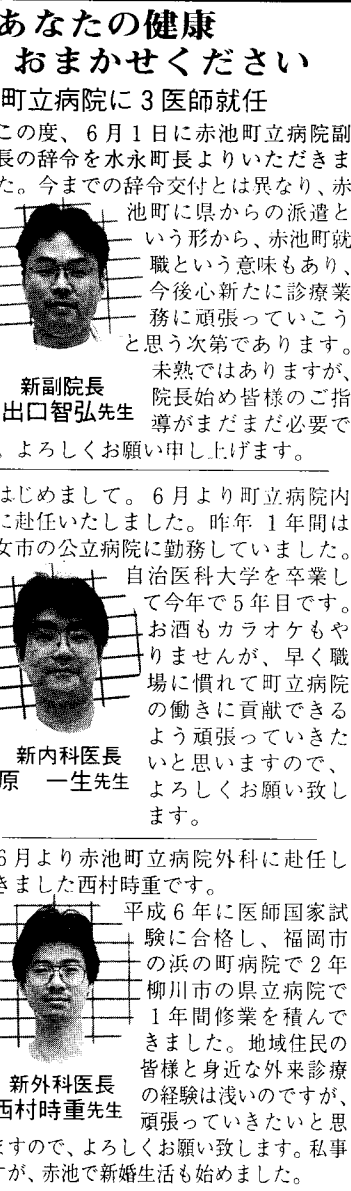 あなたの健康
おまかせください
町立病院に3医師就任
この度、6月1日に赤池町立病院副
長の辞令を水永町長よりいただきま
た。今までの辞令交付とは異なり、赤
池町に県からの派遣と
いう形から、赤池町就
職という意味もあり、
今後心新たに診療業
務に頑張っていこう
と思う次第であります。
未熟ではありますが、
院長始め皆様のご指
導がまだまだ必要で
、よろしくお願い申し上げます。
新副院長
出口智弘先生
はじめまして。6月より町立病院内
に赴任いたしました。昨年1年間は
女市の公立病院に勤務していました。
自治医科大学を卒業し
て今年で5年目です。
お酒もカラオケもや
りませんが、早く職
場に慣れて町立病院
の働きに貢献できる
よう頑張っていきた
いと思いますので、
よろしくお願い致し
ます。
新内科医長
原 一生先生
6月より赤池町立病院外科に赴任し
きました西村時重です。
平成6年に医師国家試
験に合格し、福岡市
の浜の町病院で2年
柳川市の県立病院で
1年間修業を積んで
きました。地域住民の
皆様と身近な外来診療
の経験は浅いのですが、
頑張っていきたいと思
ますので、よろしくお願い致します。私事
すが、赤池で新婚生活も始めました。
新外科医長
西村時重先生